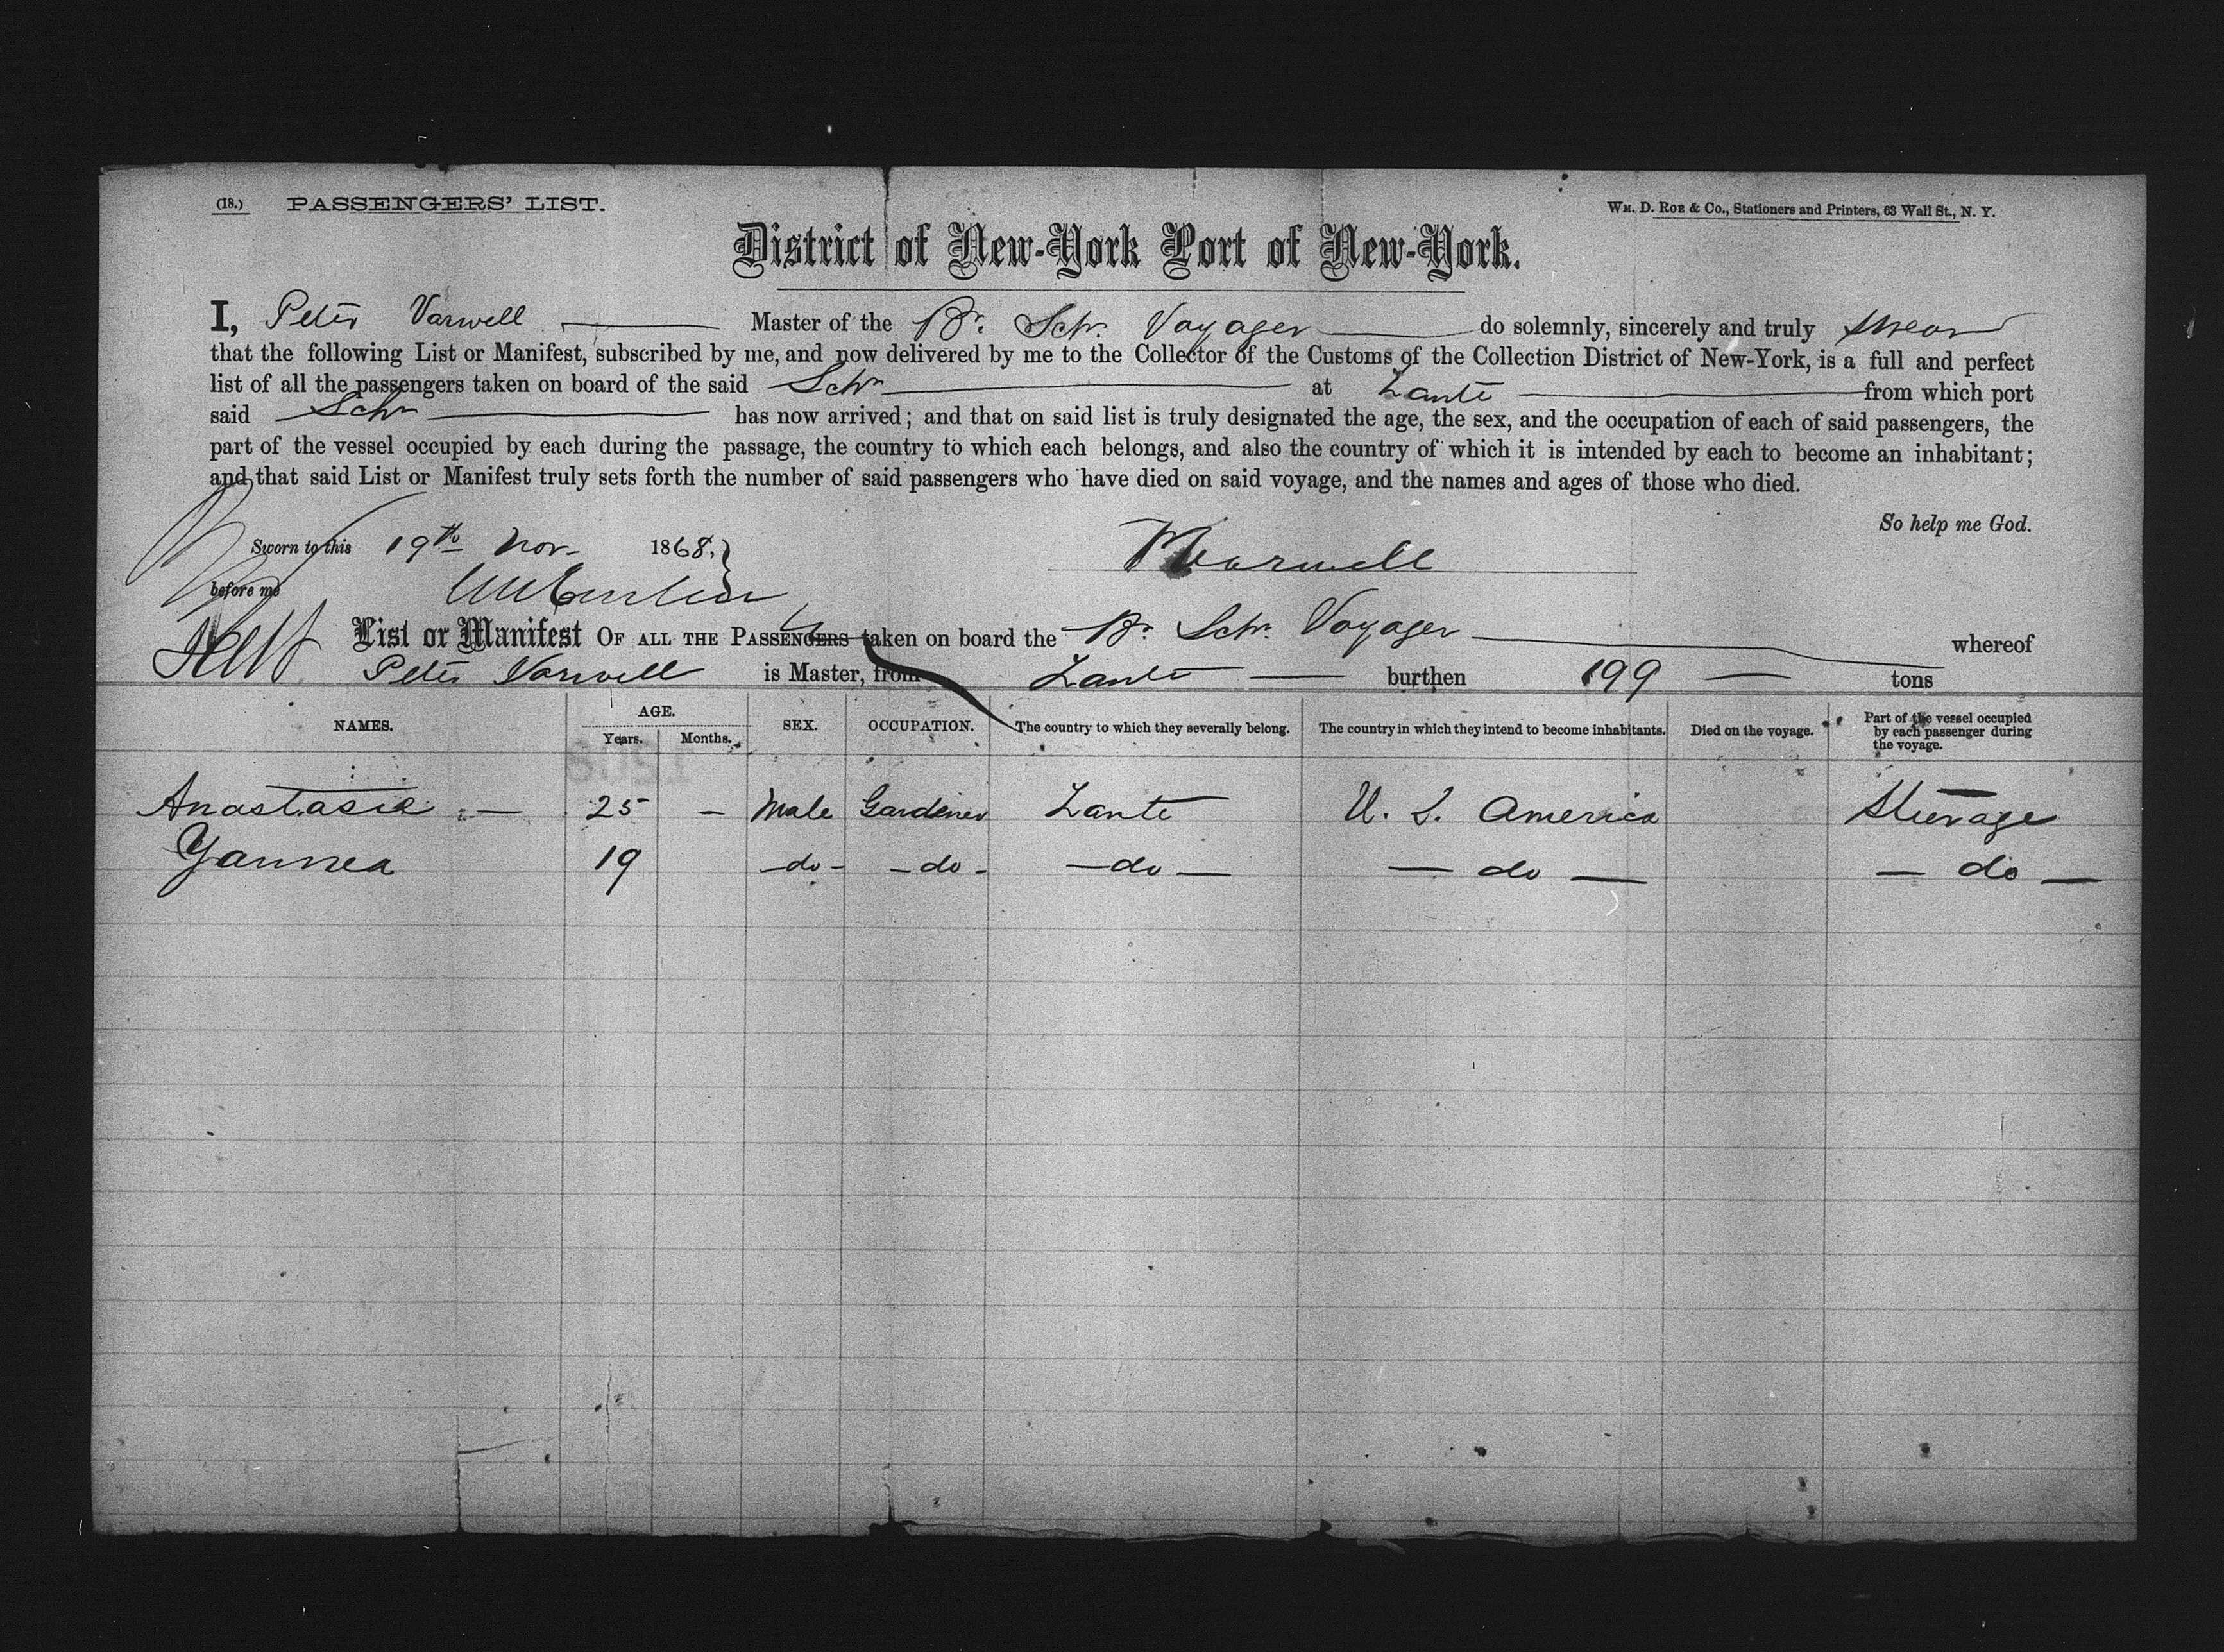 (18.) PASSENGERS' LIST.
WM. D. ROE & Co., Stationers and Printers, 63 Wall St., N. Y.
District of New-York Port of New-York.
I, Peter Varwell Master of the Br. Schr. Voyager do solemnly, sincerely and truly swear
that the following List or Manifest, subscribed by me, and now delivered by me to the Collector of the Customs of the Collection District of New-York, is a full and perfect
list of all the passengers taken on board of the said Schr at Zante from which port
said Schr has now arrived; and that on said list is truly designated the age, the sex, and the occupation of each of said passengers, the
part of the vessel occupied by each during the passage, the country to which each belongs, and also the country of which it is intended by each to become an inhabitant;
and that said List or Manifest truly sets forth the number of said passengers who have died on said voyage, and the names and ages of those who died.
So help me God.
Sworn to this 19th Nov. 1868. Varwell
before me
List or Manifest OF ALL THE PASSENGERS taken on board the Br. Schr. Voyager whereof
Peter Varwell is Master, from Zante burthen 199 tons
NAMES. AGE. Years. Months. SEX. OCCUPATION. The country to which they severally belong. The country in which they intend to become inhabitants. Died on the voyage. Part of the vessel occupied by each passenger during the voyage.
Anastasie — 25 — Male Gardener Zante U. S. America Steerage
Yannea 19 — do — — do — — do — — do — — do —